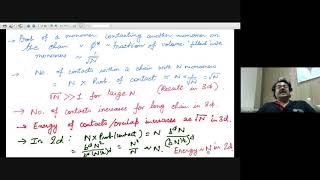 → Prob of a monomer contacting another monomer on
the chain ~ φ* ~ fraction of volume filled with
monomers ~ 1/√N
→ No. of contacts within a chain with N monomers
= N × Prob. of contact = N × 1/√N = √N
√N >> 1 for large N (Result in 3d)
→ No. of contacts increases for long chain in 3d.
→ Energy of contacts/overlap increases as √N in 3d.
→ In 2d: N × Prob(contact) = N b^d N
= b^d N² / b^d (N^½)^d = N²/N ~ N. (b N^½)^d
Energy ~ N in 2d